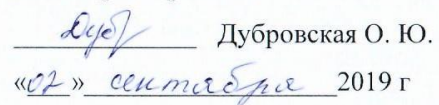 Дубровская О. Ю.
«02» сентября 2019 г